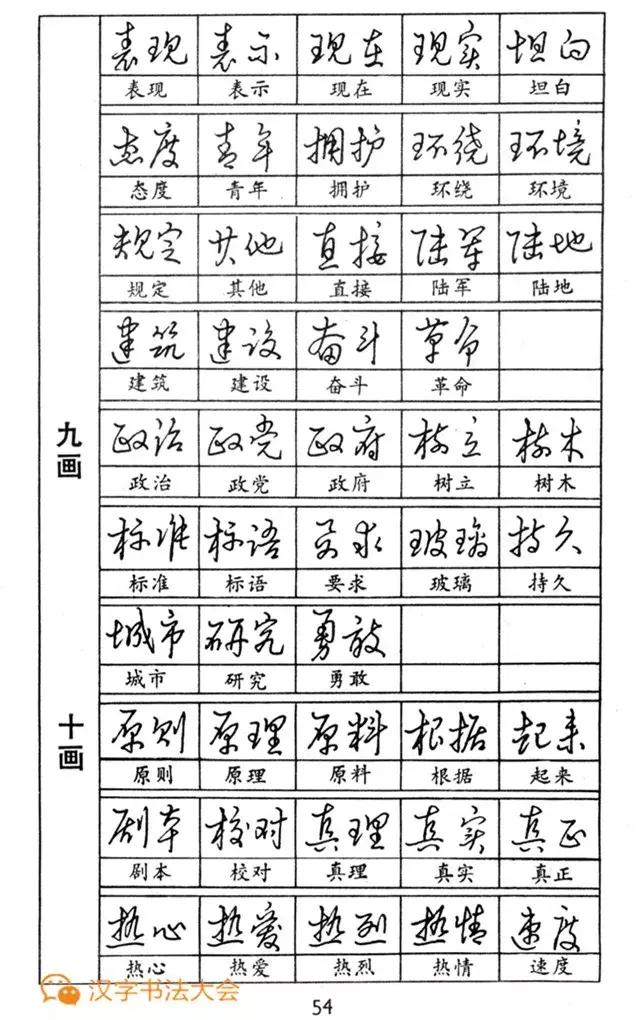 表现 表示 现在 现实 坦白
表现 表示 现在 现实 坦白
态度 青年 拥护 环绕 环境
态度 青年 拥护 环绕 环境
规定 其他 直接 陆军 陆地
规定 其他 直接 陆军 陆地
建筑 建设 奋斗 革命
建筑 建设 奋斗 革命
九画
政治 政党 政府 树立 树木
政治 政党 政府 树立 树木
标准 标语 要求 玻璃 持久
标准 标语 要求 玻璃 持久
城市 研究 勇敢
城市 研究 勇敢
十画
原则 原理 原料 根据 起来
原则 原理 原料 根据 起来
剧本 校对 真理 真实 真正
剧本 校对 真理 真实 真正
热心 热爱 热烈 热情 速度
热心 热爱 热烈 热情 速度
汉字书法大会
54